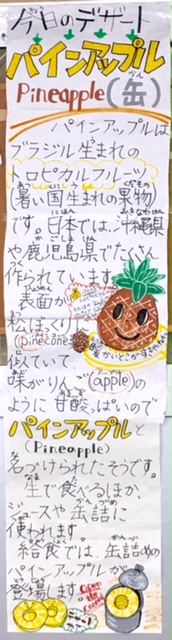 今日のデザート
パインアップル
Pineapple(缶)
パインアップルは
ブラジル生まれの
トロピカルフルーツ
(暑い国生まれの果物)
です。日本では沖縄県
や鹿児島県でたくさん
作られています。
表面が
松ぼっくりに
(pinecone)
似ていて、
味がりんご(apple)の
ように甘酸っぱいので
パインアップルと
(Pineapple)
名づけられたそうです。
生で食べるほか、
ジュースや缶詰に
使われます。
給食では、缶詰めの
パインアップルが
登場します。
Open the